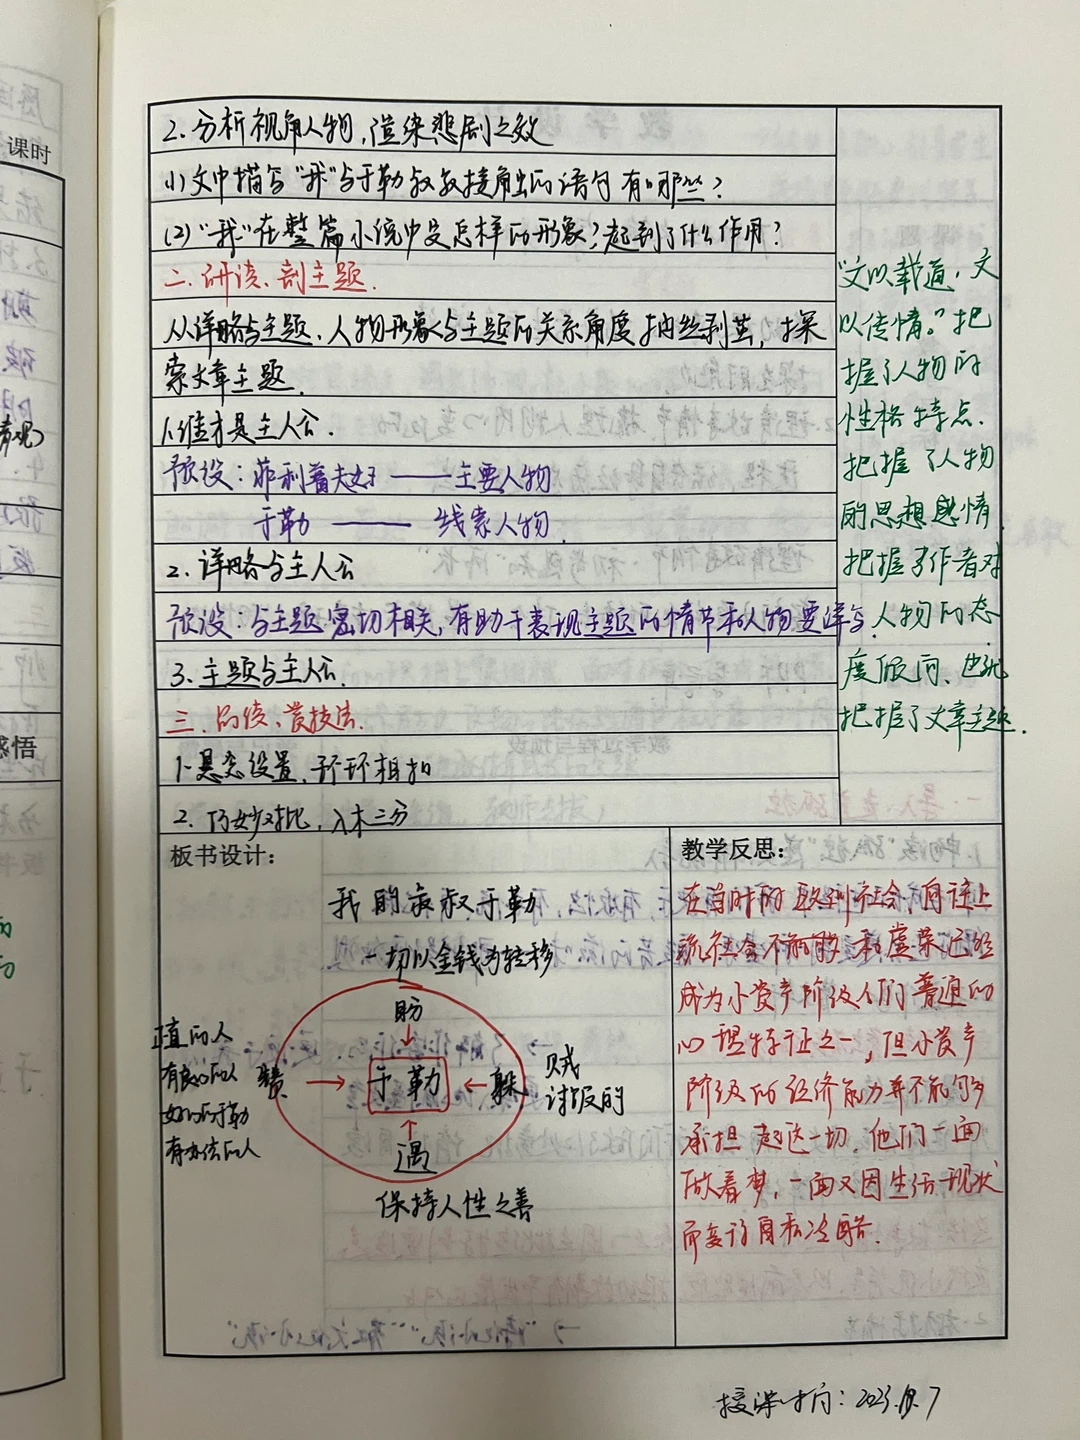 课时
感悟
2. 分析视角人物,渲染悲剧之效
(1)文中描写“我”与于勒叔叔接触的语句有哪些?
(2)“我”在整篇小说中是怎样的形象?起到了什么作用?
二、研读、剖主题.
从详略与主题、人物形象与主题的关系角度抽丝剥茧,探
索文章主题.
1.谁才是主人公.
预设:菲利普夫妇——主要人物
于勒——线索人物.
2. 详略与主人公
预设:与主题密切相关,有助于表现主题的情节和人物要详写.
3. 主题与主人公.
三.品读、赏技法.
1.悬念设置,环环相扣
2. 巧妙对比,入木三分
“文以载道,文
以传情。”把
握了人物的
性格特点.
把握了人物
的思想感情
把握了作者对
人物的态
度倾向、也就
把握了文章主题.
板书设计:
我的叔叔于勒
一切以金钱为转移
盼
正直的人
有良心的人
好心的于勒
有办法的人
赞
于勒
躲
贼
讨饭的
遇
保持人性之善
教学反思:
在当时的欧洲社会,自诩上
流社会 和虚荣已经
成为小资产阶级人们普遍的
心理特征之一,但小资产
阶级的经济能力并不能够
承担起这一切.他们一面
做着梦,一面又因生活现状
而变得自私冷酷.
授课时间:2023.